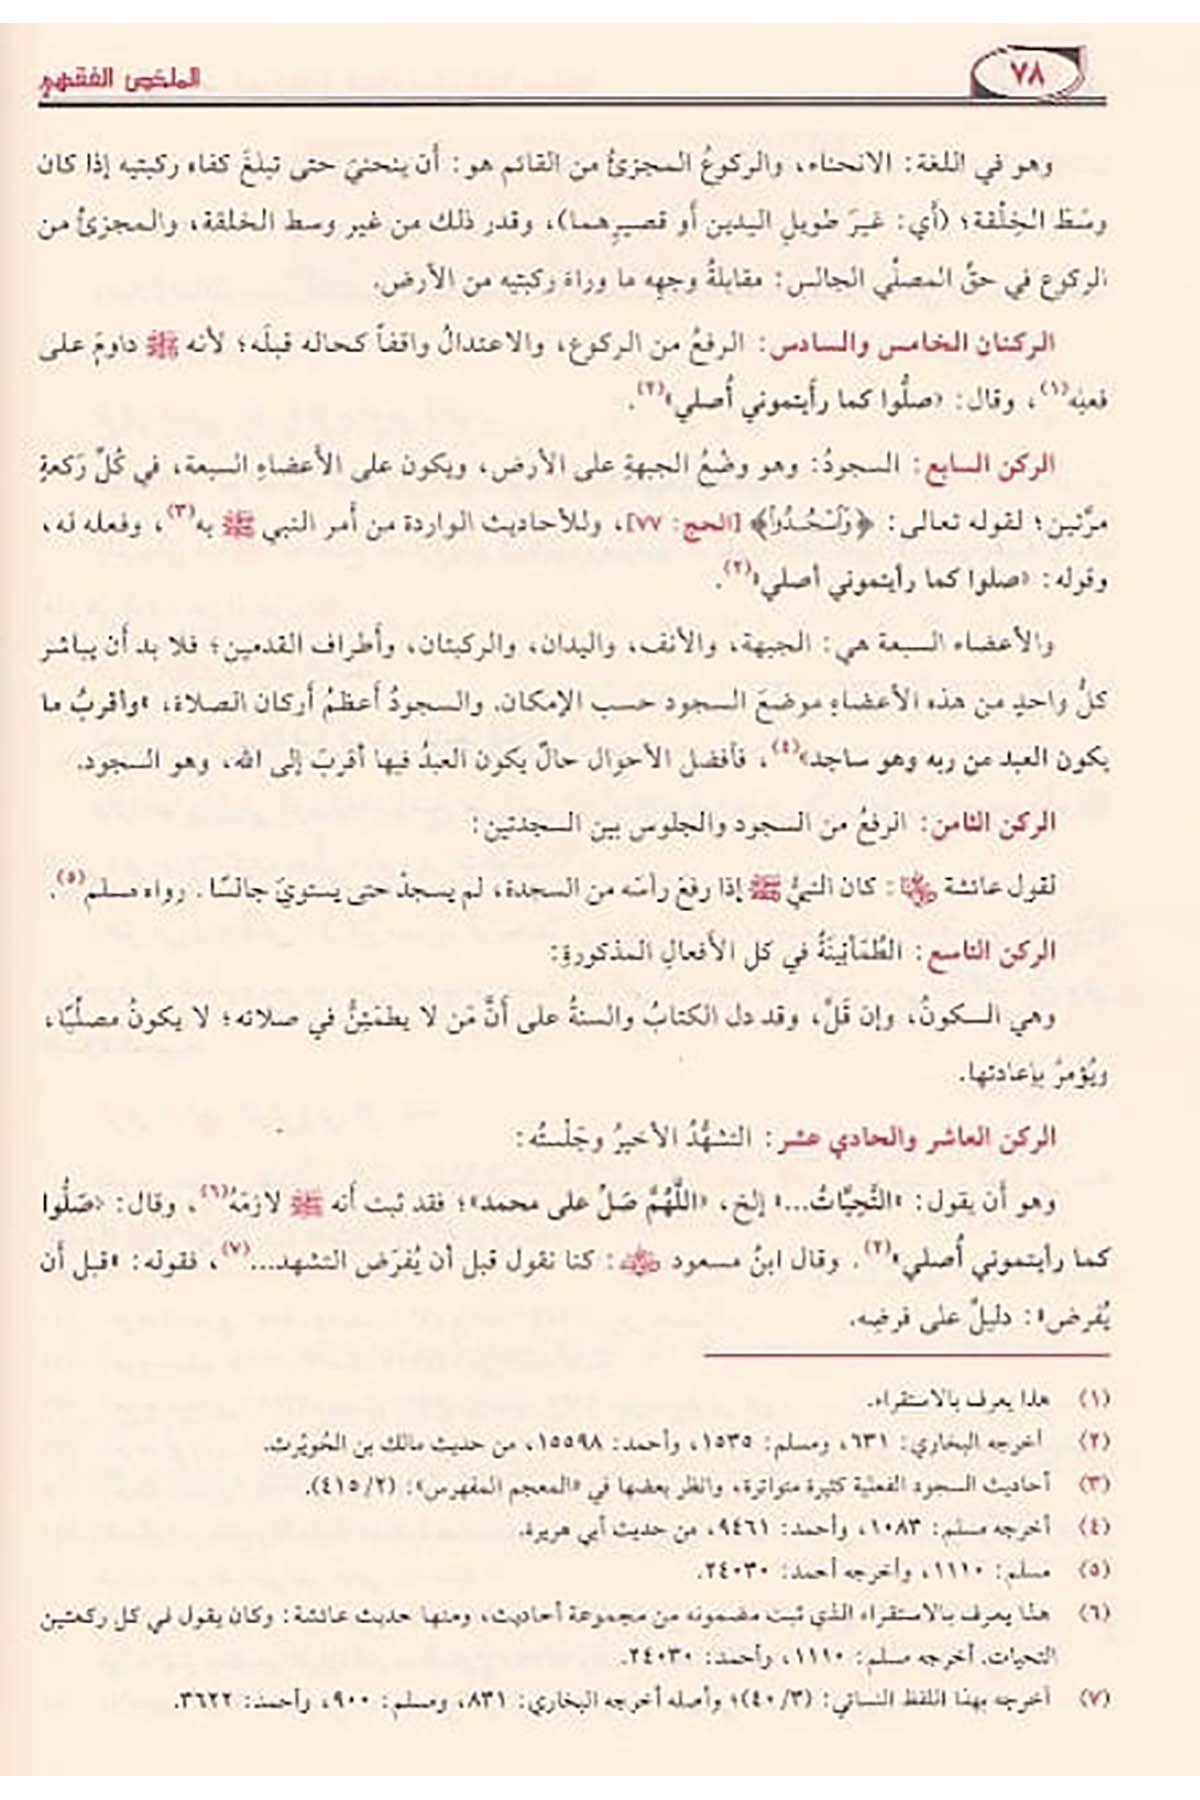 ٧٨
الملخص الفقهي
وهو في اللغة: الانحناء، والركوعُ المجزئُ من القائم هو: أن ينحنيَ حتى تبلغَ كفاه ركبتيه إذا كان
وسَطَ الخِلْقة؛ (أي: غيرَ طويلِ اليدين أو قصيرِهما)، وقدر ذلك من غير وسط الخلقة، والمجزئ من
الركوع في حقِّ المصلِّي الجالس: مقابلةُ وجهِه ما وراءَ ركبتيه من الأرض.
الركنان الخامس والسادس: الرفعُ من الركوع، والاعتدالُ واقفاً كحاله قبلَه؛ لأنه ﷺ داومَ على
فعله(١)، وقال: «صلُّوا كما رأيتموني أُصلي»(٢).
الركن السابع: السجودُ: وهو وضْعُ الجبهةِ على الأرض، ويكون على الأعضاءِ السبعة، في كُلِّ رَكعةٍ
مرَّتين؛ لقوله تعالى: ﴿وَٱسْجُدُوا۟﴾ [الحج: ٧٧]، وللأحاديث الواردة من أمر النبي ﷺ به(٣)، وفعله له،
وقوله: «صلوا كما رأيتموني أصلي»(٢).
والأعضاء السبعة هي: الجبهة، والأنف، واليدان، والركبتان، وأطراف القدمين؛ فلا بد أن يباشر
كلُّ واحدٍ من هذه الأعضاءِ موضعَ السجود حسب الإمكان. والسجودُ أعظمُ أركان الصلاة، «وأقربُ ما
يكون العبد من ربه وهو ساجد»(٤)، فأفضل الأحوال حالٌ يكون العبدُ فيها أقربَ إلى الله، وهو السجود.
الركن الثامن: الرفعُ من السجود والجلوس بين السجدتين:
لقول عائشة رضي الله عنها: كان النبيُّ ﷺ إذا رفعَ رأسَه من السجدة، لم يسجدْ حتى يستويَ جالسًا. رواه مسلم(٥).
الركن التاسع: الطُمَأنِينَةُ في كل الأفعالِ المذكورةِ:
وهي السكونُ، وإن قَلَّ، وقد دل الكتابُ والسنةُ على أَنَّ مَن لا يطمَئِنُّ في صلاته؛ لا يكونُ مصلِّيًا،
ويُؤمرُ بإعادتها.
الركن العاشر والحادي عشر: التشهُّدُ الأخيرُ وجَلْستُه:
وهو أن يقول: «التَّحِيَّاتُ...» إلخ، «اللَّهُمَّ صَلِّ على محمد»؛ فقد ثبت أنه ﷺ لازمَهُ(٦)، وقال: «صَلُّوا
كما رأيتموني أُصلي»(٢). وقال ابنُ مسعود رضي الله عنه: كنا نقول قبل أن يُفرَض التشهد...(٧)، فقوله: «قبل أن
يُفرض»: دليلٌ على فرضِه.
(١) هذا يعرف بالاستقراء.
(٢) أخرجه البخاري: ٦٣١، ومسلم: ١٥٣٥، وأحمد: ١٥٥٩٨، من حديث مالك بن الحُويْرث.
(٣) أحاديث السجود الفعلية كثيرة متواترة، وانظر بعضها في «المعجم المفهرس»: (٤١٥/٢).
(٤) أخرجه مسلم: ١٠٨٣، وأحمد: ٩٤٦١، من حديث أبي هريرة.
(٥) مسلم: ١١١٠، وأخرجه أحمد: ٢٤٠٣٠.
(٦) هذا يعرف بالاستقراء الذي ثبت مضمونه من مجموعة أحاديث، ومنها حديث عائشة: وكان يقول في كل ركعتين
التحيات. أخرجه مسلم: ١١١٠، وأحمد: ٢٤٠٣٠.
(٧) أخرجه بهذا اللفظ النسائي: (٤٠/٣)؛ وأصله أخرجه البخاري: ٨٣١، ومسلم: ٩٠٠، وأحمد: ٣٦٢٢.